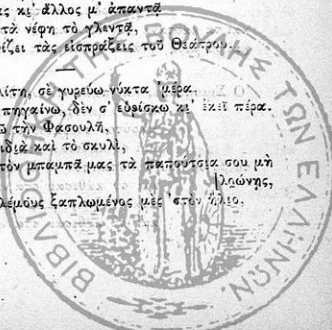 ας κι' ἄλλος μ' ἀπαντᾷ
τὰ νέφη τὸ γλεντᾷ,
ίζει τὰς εἰσπράξεις τοῦ Θεάτρου.
λίτη, σὲ γυρεύω νύκτα 'μέρα
πηγαίνω, δὲν σ' εὑρίσκω κι' ἐκεῖ πέρα.
ῶ τὴν Φασουλῆ,
ιδιὰ καὶ τὸ σκυλί,
τὸν μπαμπᾶ μας τὰ παπούτσια σου μὴ
λυώνῃς,
λέμους ξαπλωμένος μὲς 'στὸν ἥλιο,
ΒΙΒΛΙΟΘ ΤΗΣ ΒΟΥΛΗΣ ΤΩΝ ΕΛΛΗΝΩΝ